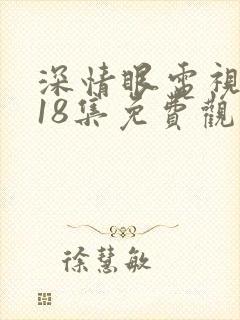 深情眼電視
18集免費觀
徐慧敏